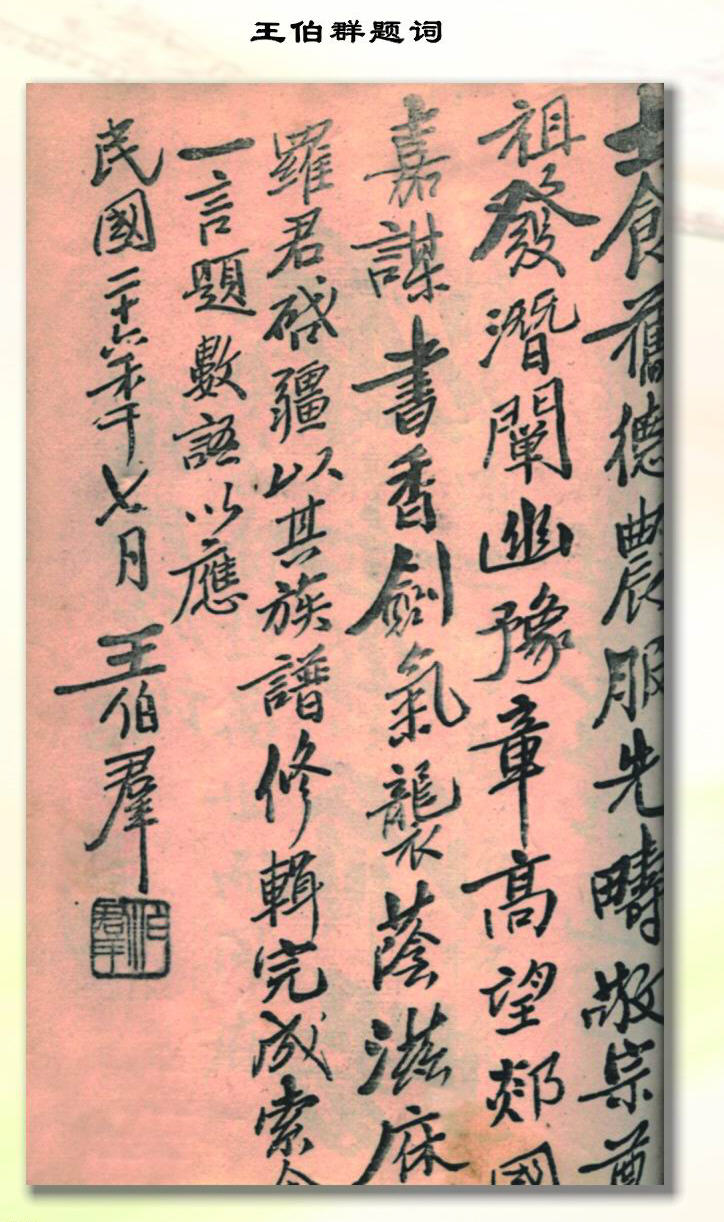 王伯群题词
士食舊德農服先疇敬宗尊
祖發潛闡幽豫章高望郯國
嘉謀書香劍氣襲蔭滋庥
羅君啓疆以其族譜修輯完成索余
一言題數語以應
民國二十六年七月 王伯羣
伯羣